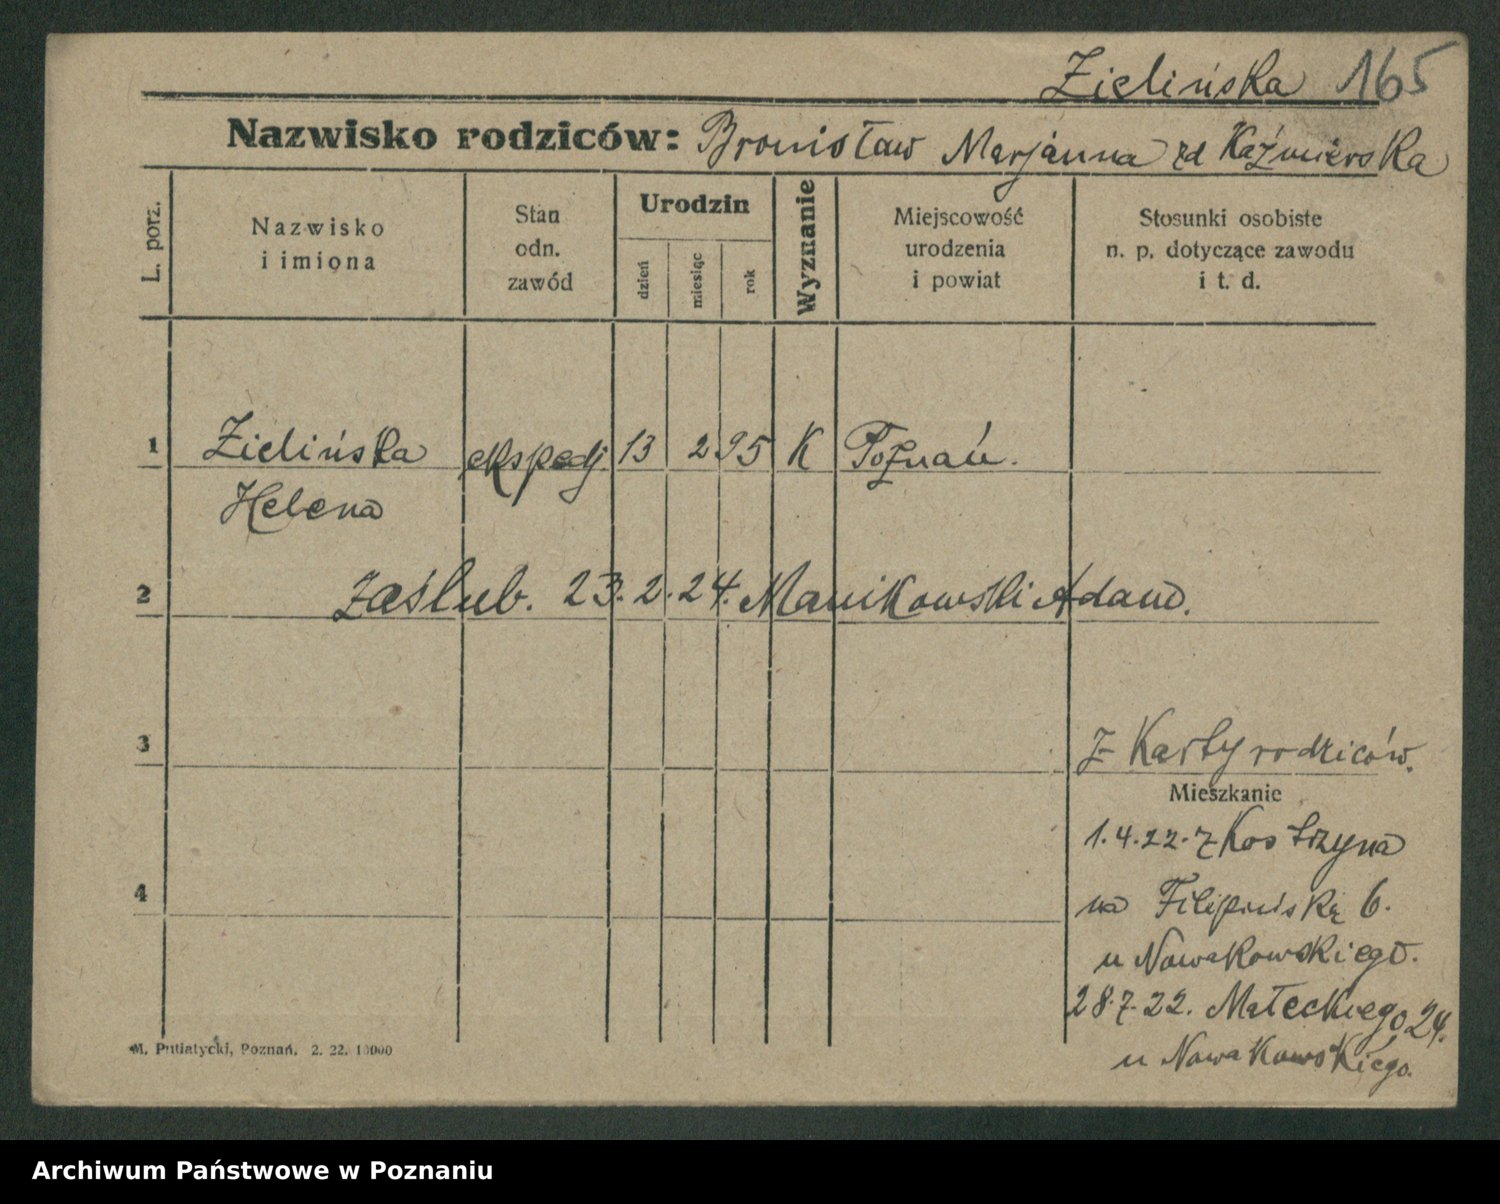 Zielińska 165
Nazwisko rodziców: Bronisław Marjanna zd Kaźmierska
L. porz.
Nazwisko
i imiona
Stan
odn.
zawód
Urodzin
dzień
miesiąc
rok
Wyznanie
Miejscowość
urodzenia
i powiat
Stosunki osobiste
n. p. dotyczące zawodu
i t. d.
1 Zielińska ekspedj. 13 2 95 K Poznań.
Helena
2 zaślub. 23.2.24. Manikowski Adam.
3 z Karty rodziców.
Mieszkanie
1.4.22. z Kostrzyna
4 na Filipińską 6.
u Nowakowskiego.
28.7.22. Małeckiego 24.
u Nowakowskiego.
M. Putiatycki, Poznań. 2. 22. 10000
Archiwum Państwowe w Poznaniu